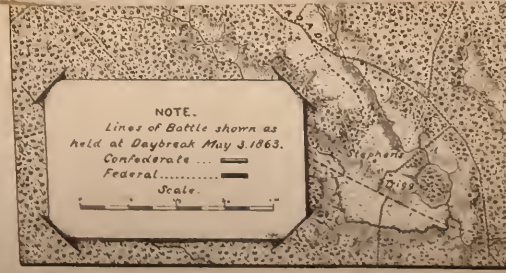 ROAD
NOTE.
Lines of Battle shown as
held at Daybreak May 3.1863.
Confederate ...
Federal..........
Scale.
Stephens
Trigg